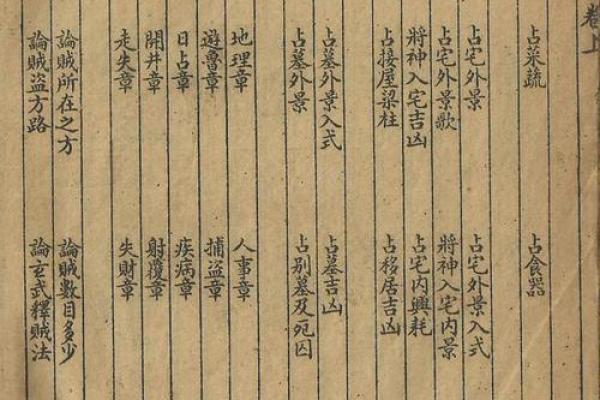 卷上
占菜蔬 占食器
占宅外景 占宅外景入式
占宅外景歌 將神入宅內景
將神入宅吉凶 占宅內興耗
占接屋梁柱 占移居吉凶
占墓外景入式 占墓吉凶
占墓外景 占別墓及宛囚
地理章 人事章
遊魯章 捕盜章
日占章 疾病章
開井章 射覆章
走失章 失財章
論賊所在之方 論賊數目多少
論賊盜方路 論玄武釋賊法